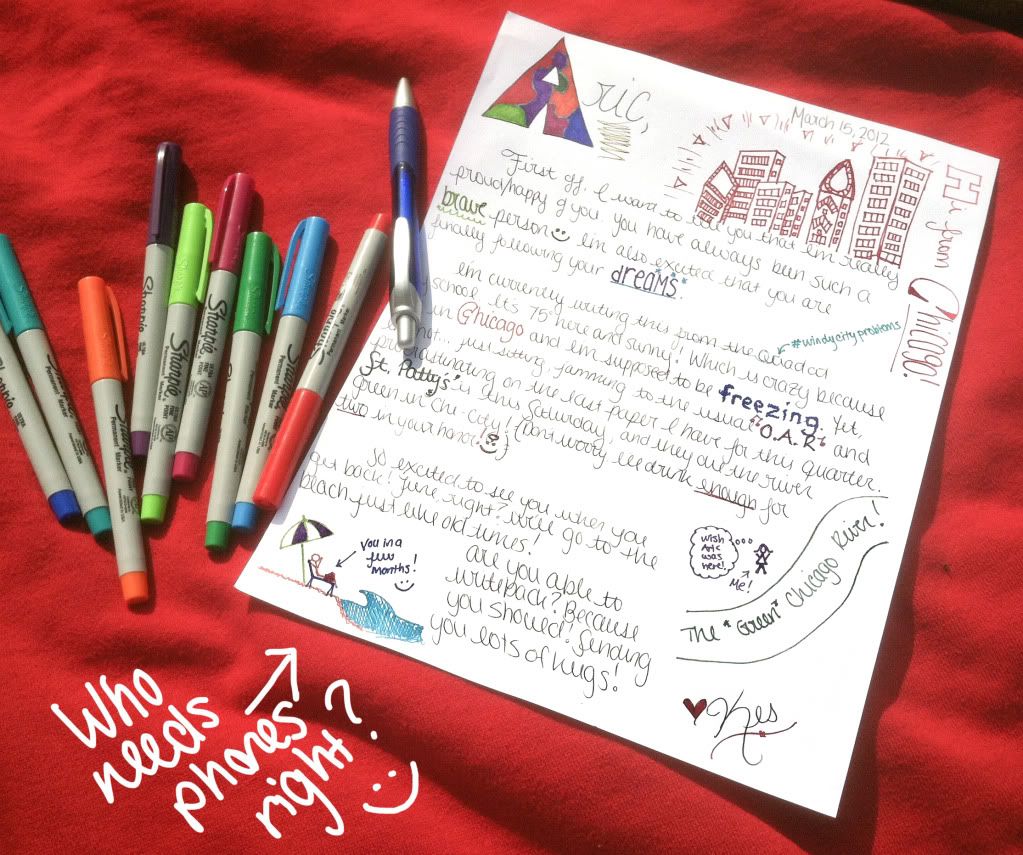 March 15, 2012
Aric,
Hi from Chicago!
First off, I want to tell you that I'm really
proud/happy of you. You have always been such a
brave person I'm also excited that you are
finally following your "dreams".
I'm currently writing this from the quad at
school. It's 75° here and sunny! Which is crazy because
I'm in Chicago and I'm supposed to be freezing. Yet,
I'm not... just sitting, jamming to the usual "O.A.R" and
procrastinating on the last paper I have for this quarter.
St. Pattys' is this Saturday, and they dye the river
green in Chi-city! (Don't worry I'll drink enough for
two in your honor!)
#windycityproblems
So excited to see you when you
get back! June, right? We'll go to the
beach just like old times!
Are you able to
write back? Because
you should! Sending
you lots of hugs!
you in a
few
months!
wish
Aric
was
here!
Me!
The "Green" Chicago River!
Kes
Sharpie
Sharpie
Sharpie
Sharpie
Sharpie
Sharpie
Permanent Marker
Who
needs
phones
right?